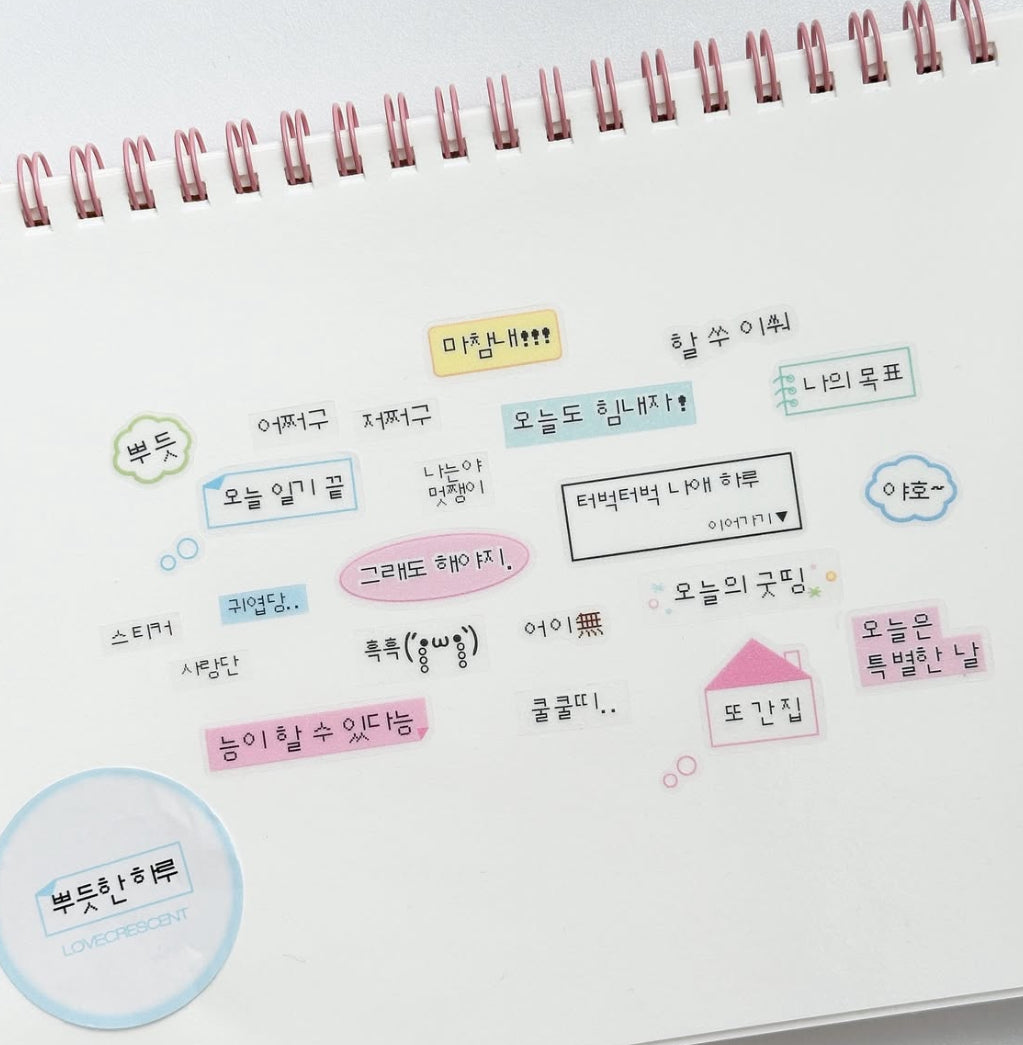 마침내!!!
할 쑤 이쒀
나의 목표
오늘도 힘내자!
어쩌구
저쩌구
뿌듯
오늘 일기 끝
나는야
멋쟁이
터벅터벅 하루
야호~
그래도 해야지.
오늘의 굿띵
귀엽당..
스티커
사랑단
흑흑
어이無
오늘은
특별한 날
쿨쿨띠..
또 간 집
능이 할 수 있다능
뿌듯한 하루
LOVECRESCENT